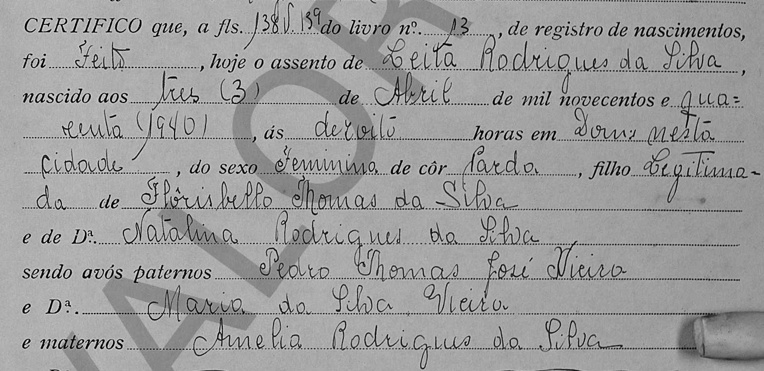 CERTIFICO que, a fls. 138v. 139 do livro nº. 13, de registro de nascimentos,
foi Feito, hoje o assento de Leita Rodrigues da Silva,
nascido aos tres (3) de Abril de mil novecentos e qua=
renta (1940), ás dezoito horas em Dom.; nesta
cidade, do sexo Feminina de côr Parda, filho Legitima-
da de Flôrisbello Thomas da Silva
e de Dª. Natalina Rodrigues da Silva
sendo avós paternos Pedro Thomas José Vieira
e Dª. Maria da Silva Vieira
e maternos Amelia Rodrigues da Silva
VALOR